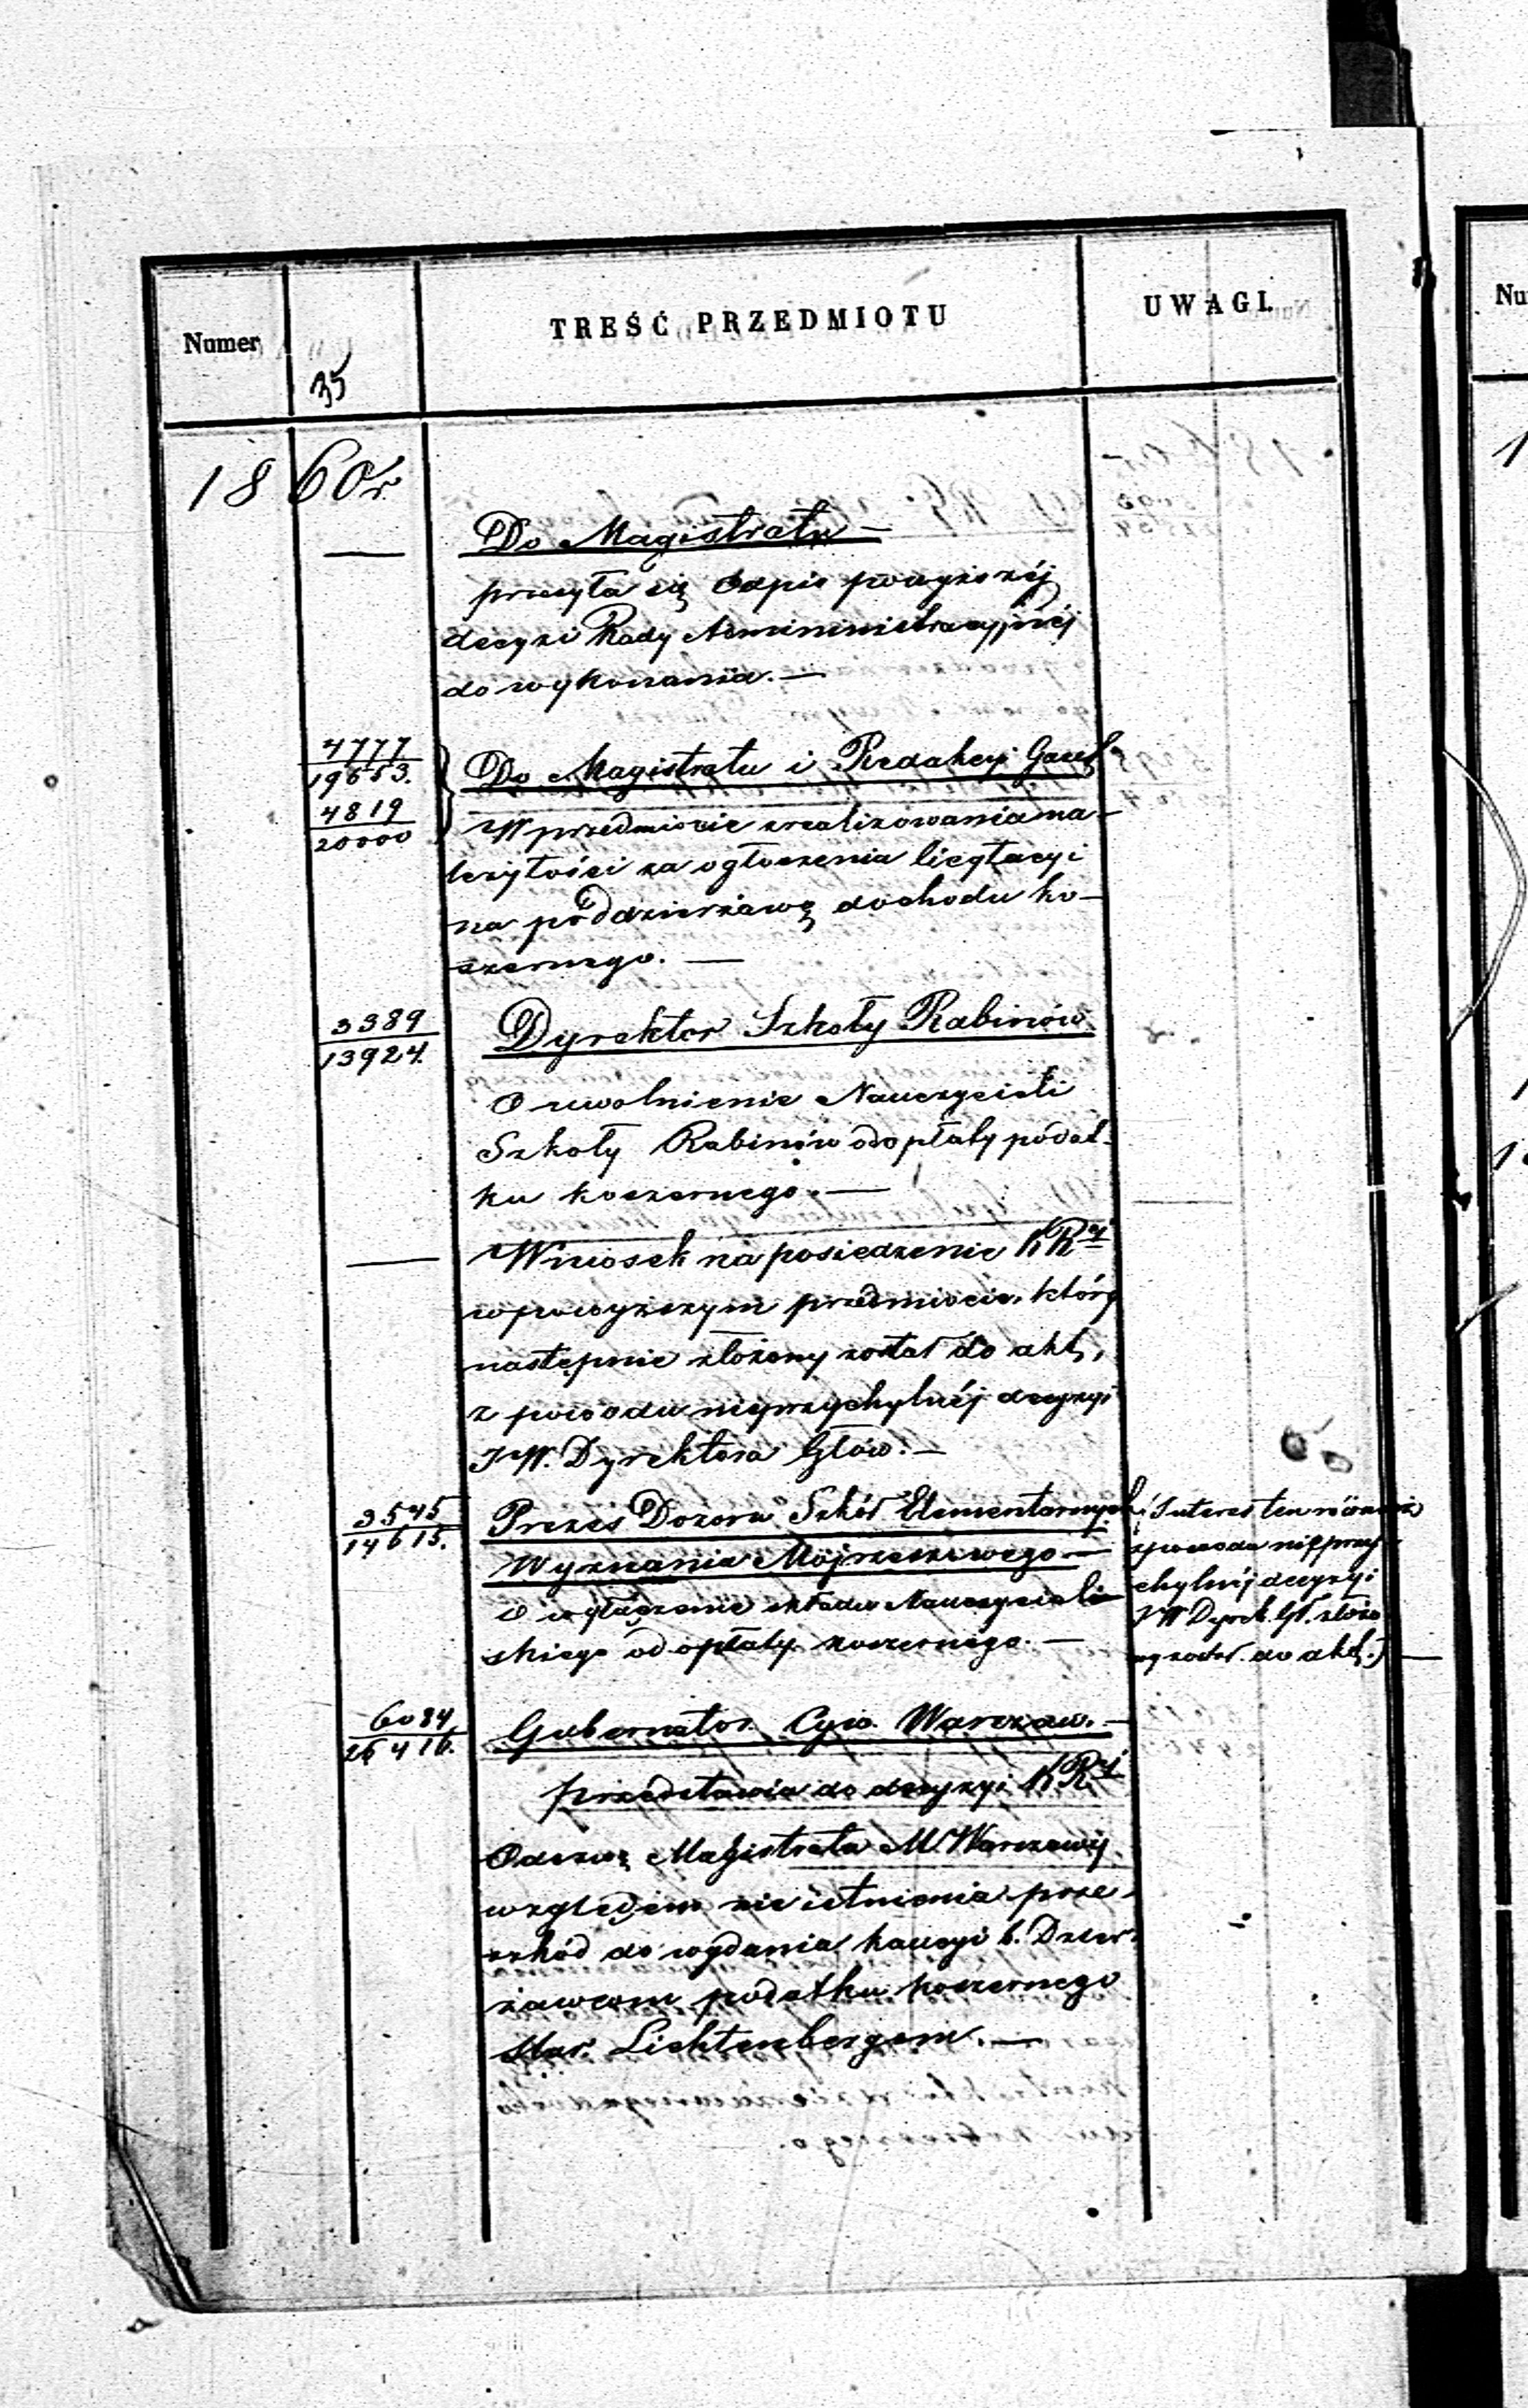 Numer
35
TREŚĆ PRZEDMIOTU
UWAGI.
1860r.
Do Magistratu —
przesyła się Odpis powyższéj
decyzi Rady Administracyjnéj
do wykonania. —
4777
19653.
4819
20000
Do Magistratu i Redakcyi Gazet
W przedmiocie zrealizowania na-
leżytości za ogłoszenia licytacyi
na poddzierżawę dochodu ko-
szernego. —
3389
13924.
Dyrektor Szkoły Rabinów
O uwolnienie Nauczycieli
Szkoły Rabinów od opłaty podat-
ku koszernego. —
— Wniosek na posiedzenie KRyi
w powyższym przedmiocie, który
następnie złożony został do akt,
z powodu nieprzychylnéj decyzyi
JW. Dyrektora Głów. —
3545
14615.
Prezes Dozoru Szkół Elementarnych
Wyznania Mojżeszowego —
o wyłączenie składu Nauczyciel-
skiego od opłaty koszernego. —
(Interes ten również
z powodu nieprzy-
chylnéj decyzyi
JW Dyrek. Gł. złożo
ny został do akt.) —
6084
26416.
Gubernator Cyw. Warszaw. —
przedstawia do decyzyi KRyi
Odezwę Magistratu M. Warszawy
względem nie istnienia prze-
szkód do wydania kaucyi b. Dzier-
żawcom podatku koszernego
Star. Lichtenbergom. —
Nu